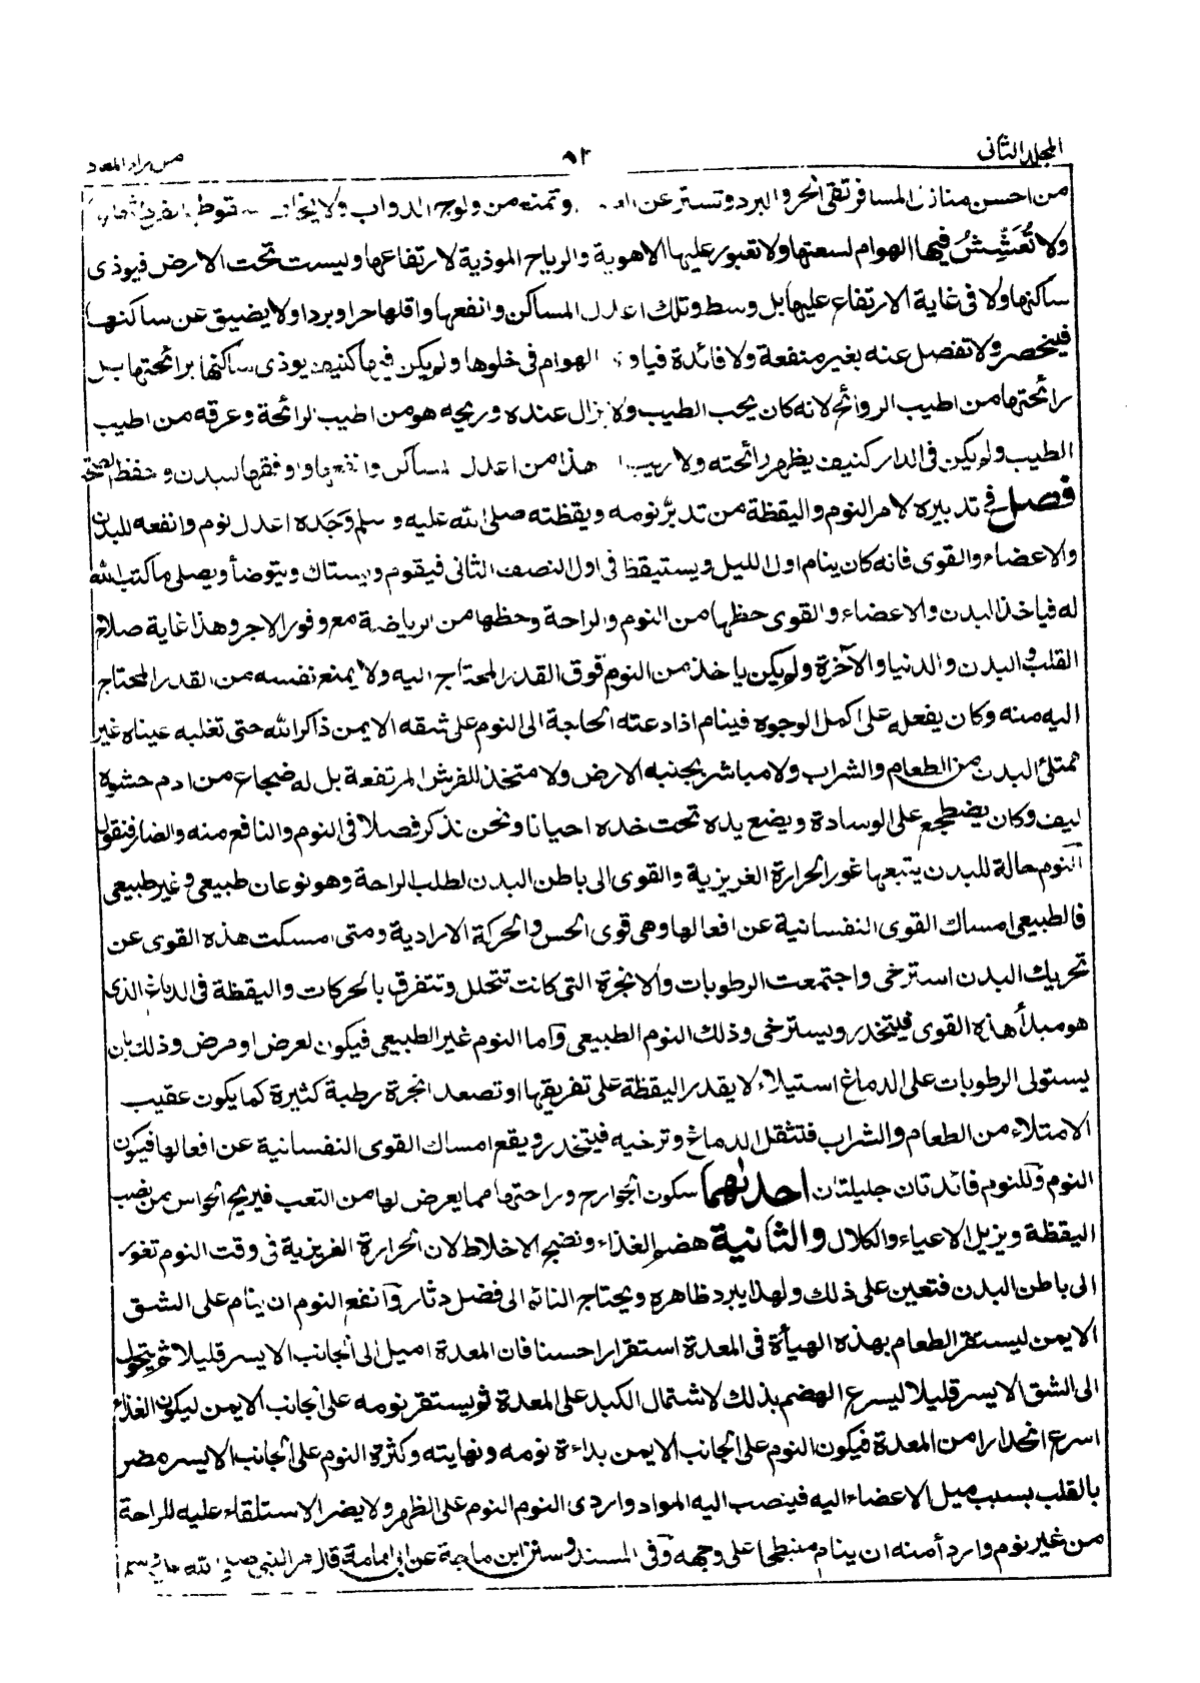 المجلد الثانى ٩٢ من زاد المعاد
من احسن منازل المسافر تقى الحر والبرد وتستر عن وتمنع من ولوج الدواب ولا يخاف
ولا تُعَشِّشُ فيها الهوام لسعتها ولا تعبور عليها الاهوية والرياح الموذية لارتفاعها وليست تحت الارض فيوذى
ساكنها ولا فى غاية الارتفاع عليها بل وسط وتلك اعدل المساكن وانفعها واقلها حرا وبردا ولا يضيق عن ساكنها
فينحصر ولا تفصل عنه بغير منفعة ولا فائدة فياوى الهوام فى خلوها ولم يكن فيها كنيف يوذى ساكنها برائحتها بل
رائحتها من اطيب الروائح لانه كان يحب الطيب ولا يزال عنده وريحه هو من اطيب الرائحة وعرقه من اطيب
الطيب ولم يكن فى الدار كنيف يظهر رائحته ولا ريب هذا من اعدل المساكن وانفعها واوفقها للبدن وحفظ الصحة
فصل فى تدبيره لامر النوم واليقظة من تدبّر نومه ويقظته صلى الله عليه وسلم وَجَده اعدل نوم وانفعه للبدن
والاعضاء والقوى فانه كان ينام اول الليل ويستيقظ فى اول النصف الثانى فيقوم ويستاك ويتوضأ ويصلى ما كتب الله
له فياخذ البدن والاعضاء والقوى حظها من النوم والراحة وحظها من الرياضة مع وفور الاجر وهذا غاية صلاح
القلب والبدن والدنيا والآخرة ولم يكن ياخذ من النوم فوق القدر المحتاج اليه ولا يمنع نفسه من القدر المحتاج
اليه منه وكان يفعله على اكمل الوجوه فينام اذا دعته الحاجة الى النوم على شقه الايمن ذاكرا لله حتى تغلبه عيناه غير
ممتلئ البدن من الطعام والشراب ولا مباشر بجنبه الارض ولا متخذ للفرش المرتفعة بل له ضجاع من ادم حشوه
ليف وكان يضطجع على الوسادة ويضع يده تحت خده احيانا ونحن نذكر فصلا فى النوم والنافع منه والضار فنقول
النوم حالة للبدن يتبعها غور الحرارة الغريزية والقوى الى باطن البدن لطلب الراحة وهو نوعان طبيعى وغير طبيعى
فالطبيعى امساك القوى النفسانية عن افعالها وهى قوى الحس والحركة الارادية ومتى امسكت هذه القوى عن
تحريك البدن استرخى واجتمعت الرطوبات والابخرة التى كانت تتحلل وتتفرق بالحركات واليقظة فى الدماغ الذى
هو مبدأ هذه القوى فيتخدر ويسترخى وذلك النوم الطبيعى وآما النوم غير الطبيعى فيكون لعرض او مرض وذلك بان
يستولى الرطوبات على الدماغ استيلاء لا يقدر اليقظة على تفريقها او تصعد ابخرة رطبة كثيرة كما يكون عقيب
الامتلاء من الطعام والشراب فتثقل الدماغ وترخيه فيتخدر ويقع امساك القوى النفسانية عن افعالها فيكون
النوم وآللنوم فائدتان جليلتان احدٰهما سكون الجوارح وراحتها مما يعرض لها من التعب فيريح الحواس من نصب
اليقظة ويزيل الاعياء والكلال والثانية هضم الغذاء ونضج الاخلاط لان الحرارة الغريزية فى وقت النوم تغور
الى باطن البدن فتعين على ذلك ولهذا يبرد ظاهره ويحتاج النائم الى فضل دثار وآنفع النوم ان ينام على الشق
الايمن ليستقر الطعام بهذه الهيأة فى المعدة استقرارا حسنا فان المعدة اميل الى الجانب الايسر قليلا ثم يتحول
الى الشق الايسر قليلا ليسرع الهضم بذلك لاشتمال الكبد على المعدة ثم يستقر نومه على الجانب الايمن ليكون الغذاء
اسرع انحدارا من المعدة فيكون النوم على الجانب الايمن بداءة نومه ونهايته وكثرة النوم على الجانب الايسر مضر
بالقلب بسبب ميل الاعضاء اليه فينصب اليه المواد واردى النوم النوم على الظهر ولا يضر الاستلقاء عليه للراحة
من غير نوم واردأ منه ان ينام منبطحا على وجهه وفى المسند وسنن ابن ماجة عن ابى امامة قال مر النبى صلى الله عليه وسلم